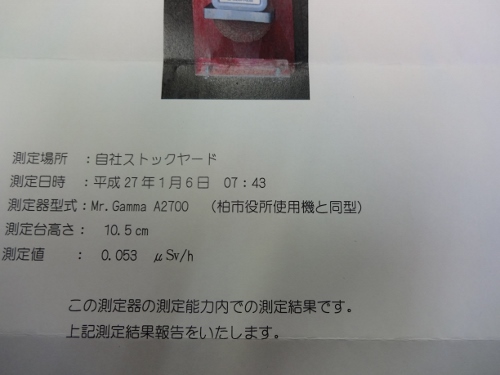 測定場所 ：自社ストックヤード
測定日時 ：平成27年1月6日 07：43
測定器型式：Mr.Gamma A2700 （柏市役所使用機と同型）
測定台高さ： 10.5cm
測定値 ： 0.053 μSv/h
この測定器の測定能力内での測定結果です。
上記測定結果報告をいたします。